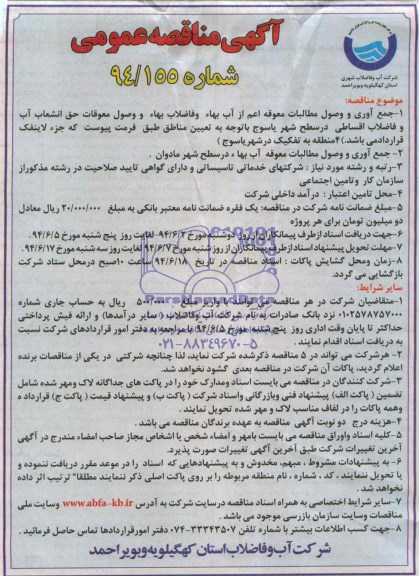 آگهی مناقصه عمومی
شماره ۹۴/۱۵۵
شرکت آب وفاضلاب شهری
استان کهگیلویه وبویراحمد
موضوع مناقصه:
۱-جمع آوری و وصول مطالبات معوقه اعم از آب بهاء وفاضلاب بهاء و وصول معوقات حق انشعاب آب
و فاضلاب اقساطی درسطح شهر یاسوج باتوجه به تعیین مناطق طبق فرمت پیوست که جزء لاینفک
قراردادمی باشد.(۴منطقه به تفکیک درشهریاسوج)
۲- جمع آوری و وصول مطالبات معوقه آب بهاء درسطح شهر مادوان .
۳-رتبه و رشته مورد نیاز : شرکتهای خدماتی تاسیساتی و دارای گواهی تایید صلاحیت در رشته مذکوراز
سازمان کار وتامین اجتماعی
۴-محل تامین اعتبار : درآمد داخلی شرکت
۵-مبلغ ضمانت نامه شرکت در مناقصه: یک فقره ضمانت نامه معتبر بانکی به مبلغ ۲۰/۰۰۰/۰۰۰ ریال معادل
دو میلیون تومان برای هر پروژه
۶-جهت دریافت اسناد ازطرف پیمانکاران ازروز دوشنبه مورخ ۹۴/۶/۲ لغایت روز پنج شنبه مورخ ۹۴/۶/۵.
۷-مهلت تحویل پیشنهاد اسنادازطرف پیمانکاران از روز شنبه مورخ ۹۴/۶/۷ لغایت روز سه شنبه مورخ ۹۴/۶/۱۷
۸-زمان ومحل گشایش پاکات : اسناد مناقصه در تاریخ ۹۴/۶/۱۸ ساعت ۱۰صبح درمحل ستاد شرکت
بازگشایی می گردد.
سایر شرایط:
۱-متقاضیان شرکت در هر مناقصه می توانند با واریز مبلغ ۵۰۰/۰۰۰ ریال به حساب جاری شماره
۰۱۰۲۵۷۸۷۵۷۰۰۰ نزد بانک صادرات به نام شرکت آب وفاضلاب ( سایر درآمدها) و ارائه فیش پرداختی
حداکثر تا پایان وقت اداری روز پنج شنبه مورخ ۹۴/۶/۵ با مراجعه به دفتر امور قراردادهای شرکت نسبت
به دریافت اسناد اقدام نمایند .
۲- هرشرکت می تواند در ۵ مناقصه ذکرشده شرکت نماید، لذا چنانچه شرکتی در یکی از مناقصات برنده
اعلام گردید، پاکات آن شرکت در مناقصه بعدی گشود نخواهد شد.
۳-شرکت کنندگان در مناقصه می بایست اسناد ومدارک خود را در پاکت های جداگانه لاک ومهر شده شامل
تضمین ( پاکت الف) پیشنهاد فنی وبازرگانی واسناد شرکت ( پاکت ب) و پیشنهاد قیمت ( پاکت ج) قرارداده
وهمه پاکات را در لفاف مناسب لاک و مهر شده تحویل نمایند .
۴-هزینه درج دو نوبت آگهی مناقصه به عهده برندگان مناقصه می باشد .
۵-کلیه اسناد واوراق مناقصه می بایست بامهر و امضاء شخص یا اشخاص مجاز صاحب امضاء مندرج در آگهی
آخرین تغییرات شرکت طبق آخرین آگهی تغییرات صورت پذیرد.
۶- به پیشنهادات مشروط ، مبهم، مخدوش و به پیشنهادهایی که اسناد را در موعد مقرر دریافت ننموده و
یا تحویل ننمایند ، کد ، شماره ، نام منطقه مربوطه را بر روی پاکت اصلی ذکر ننمایند مطلقا" ترتیب اثر داده
نخواهد شد
۷-سایر شرایط اختصاصی به همراه اسناد مناقصه درسایت شرکت به آدرس www.abfa-kb.ir وسایت ملی
مناقصات وسایت سازمان بازرسی موجود می باشد .
۸-جهت کسب اطلاعات بیشتر با شماره تلفن ۳۳۳۴۳۵۰۷-۰۷۴ دفتر امورقراردادها تماس حاصل فرمائید .
شرکت آب وفاضلاب استان کهگیلویه وبویراحمد
۰۲۱-۸۸۳۴۹۶۷۰-۵